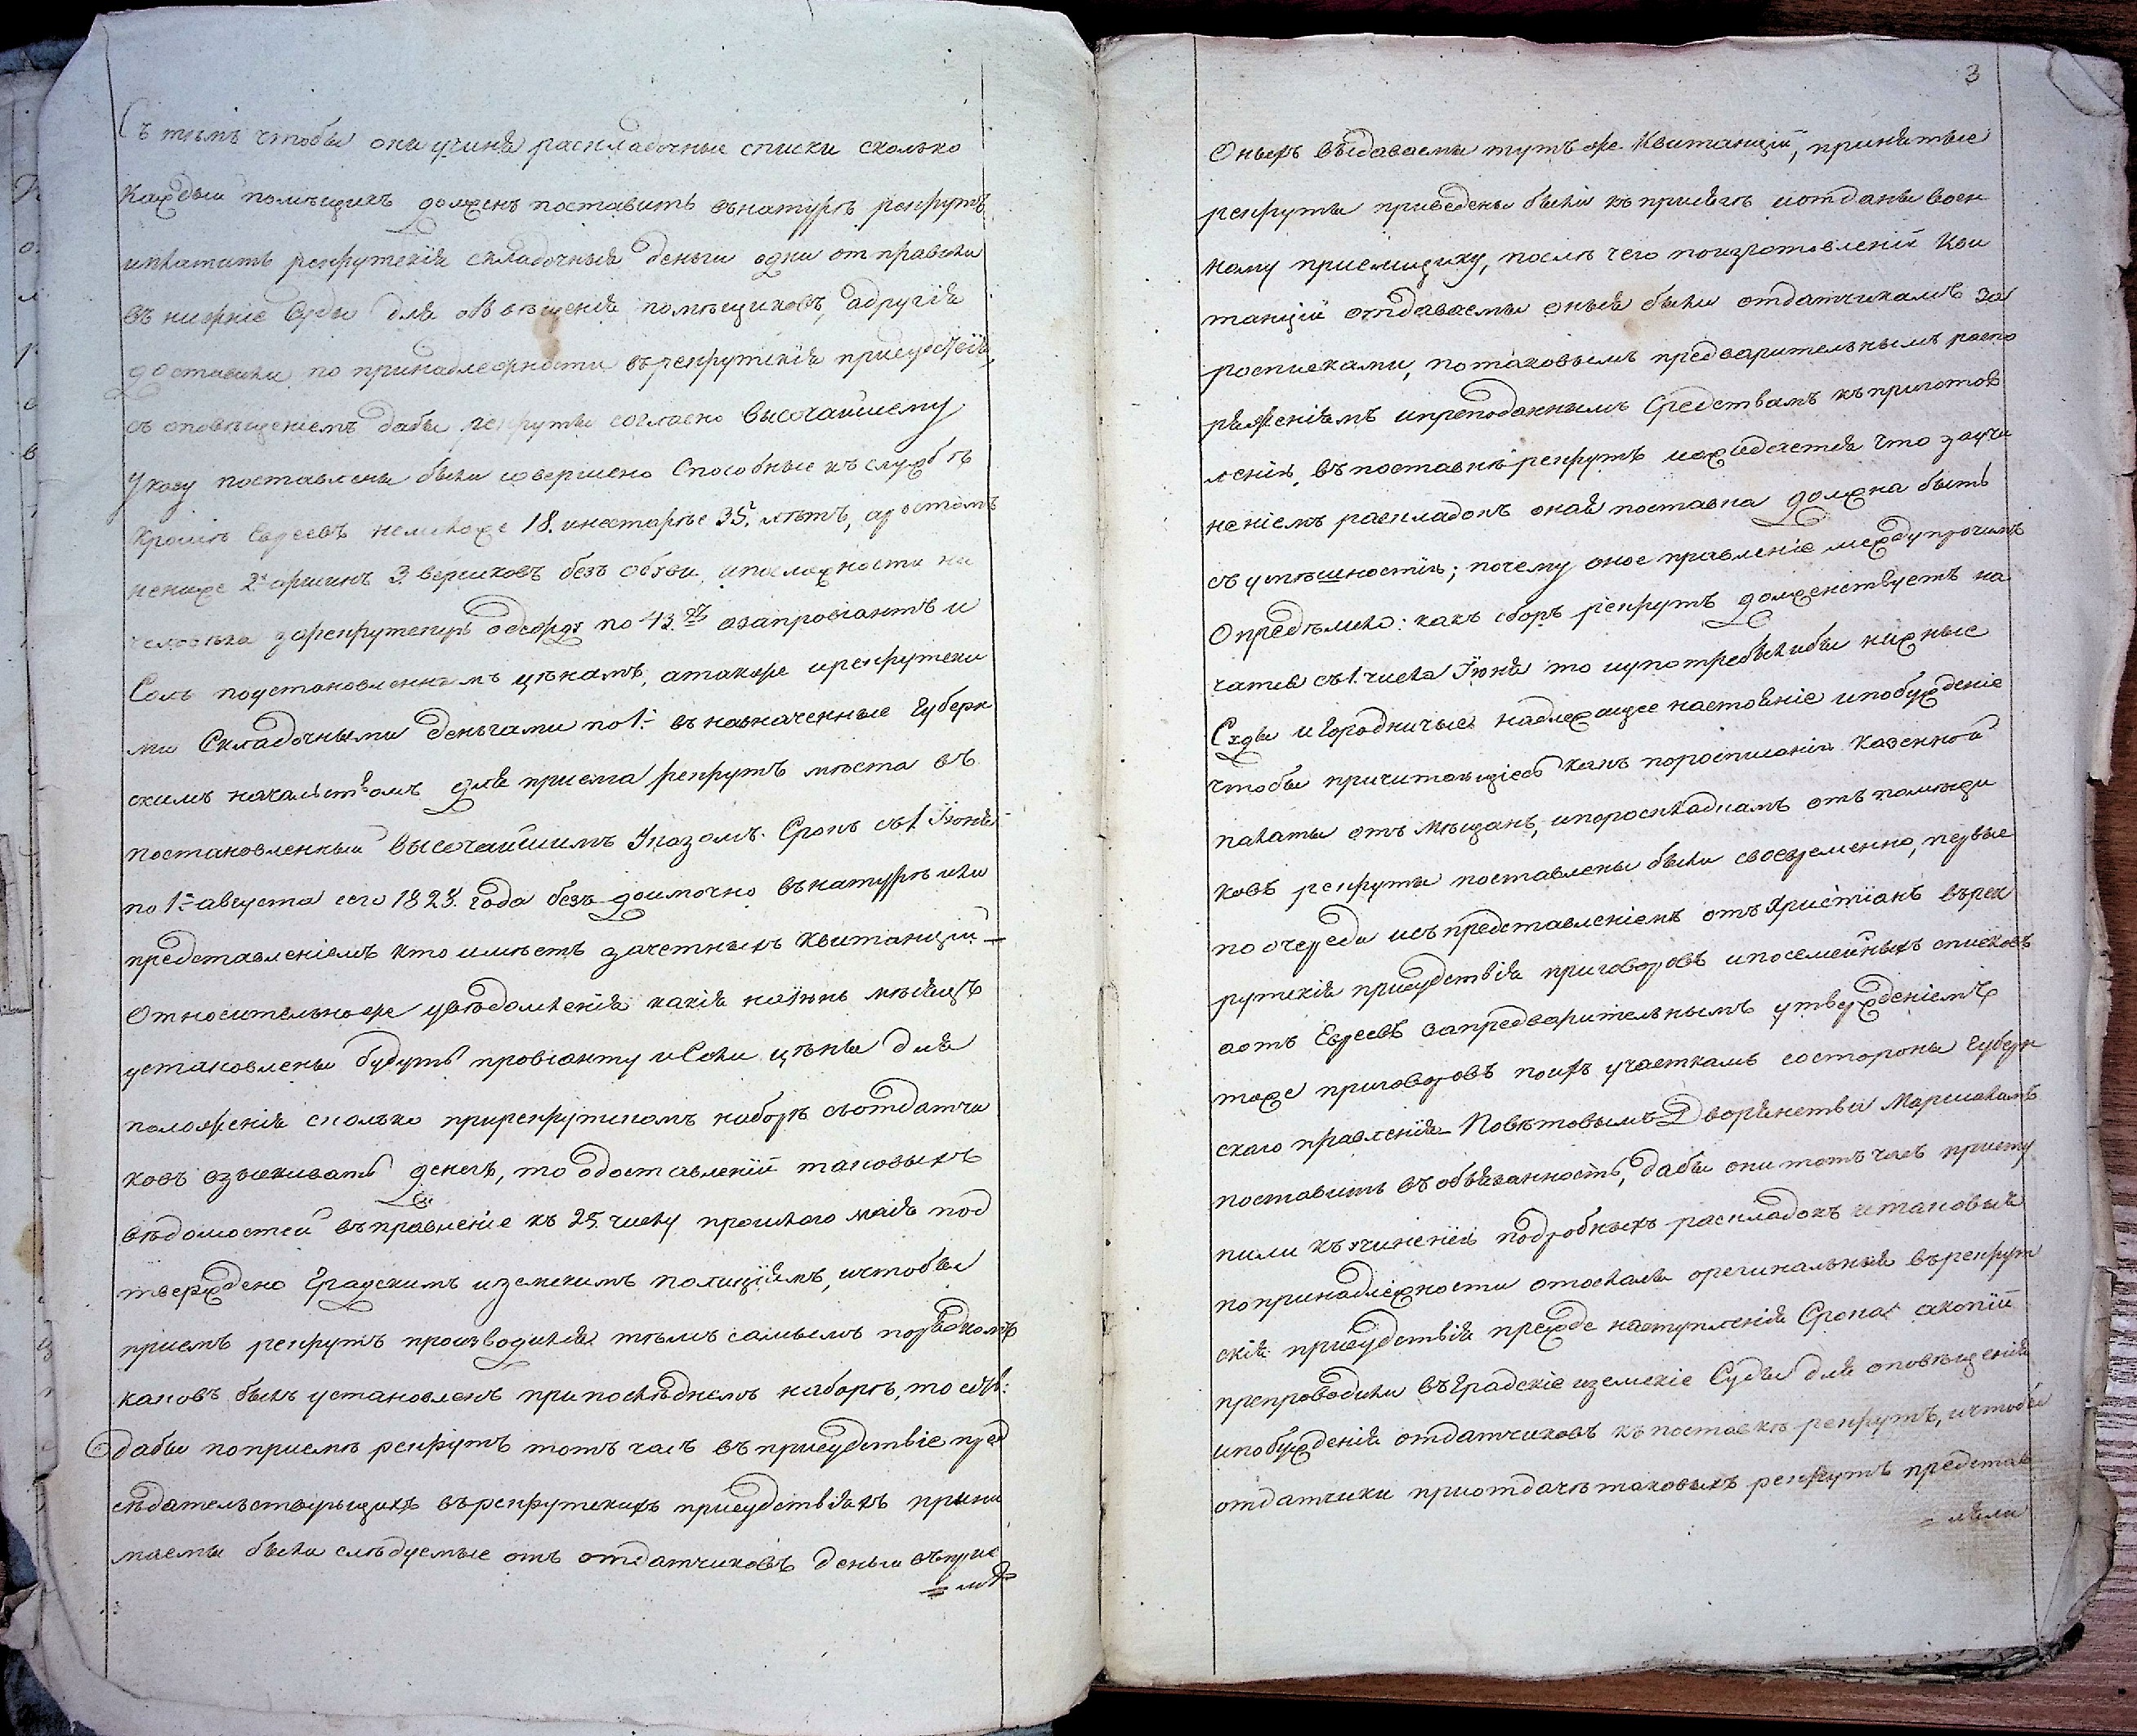 Съ тѣмъ чтобы они учиня раскладочные списки сколько
каждый помѣщикъ долженъ поставить внатурѣ рекрутъ
иплатить рекрутскія складочныя деньги одни отправили
въ нижніе Суды для обвѣщенія помѣщиковъ, адругія
доставили по принадлежности врекрутскія присудствія,
съ оповѣщеніемъ дабы рекруты согласно Высочайшему
Указу поставлены были совершено способные къ службѣ
кромѣ Евреевъ немоложе 18. инестарѣе 35. лѣтъ, аростомъ
нениже 2х аршинъ 3. вершковъ безъ обуви,
зарекрутскую одежду по 43 озапровіантъ и
Соль поустановленнымъ цѣнамъ, атакже ирекрутски
ми Складочными деньгами по 1. въ назначенные Губерн
скимъ начальствомъ для приема рекрутъ мѣста въ
постановленный Высочайшимъ Указомъ Срокъ съ 1. Іюня
по 1е августа сего 1828. года безъ доимочно внатурѣ или
представленіемъ кто имѣетъ зачетныхъ Квитанцій –
Относительноже уведомленія какія наіюнь мѣсяцъ
установлены будутъ провіанту иСоли цѣны для
положенія сколько прирекрутскомъ наборѣ съотдатчи
ковъ взыскивать денегъ, то одоставленіи таковыхъ
вѣдомостей въправленіе къ 25. числу прошлаго мая под
тверждено Градскимъ иземскимъ полиціямъ, ичтобы
приемъ рекрутъ производился тѣмъ самымъ порядкомъ
каковъ былъ установленъ при послѣднемъ наборѣ, то есть:
дабы поприемѣ рекрутъ тотъ часъ въ присудствіе пред
сѣдательствующихъ врекрутскихъ присудствіяхъ прини
маемы были слѣдуемые отъ отдатчиковъ деньги въприе
= мѣ
3
Оныхъ выдаваемы тутъ же Квитанціи, принятые
рекруты приведены были къ присягѣ иотданы воен
ному приемщику, послѣ чего поизготовленіи Кви
танціи отдаваемы оныя были отдатчикамъ за
росписками, потаковымъ предварительнымъ распо
ряженіямъ ипреподаннымъ Средствамъ къ приготов
ленію, въпоставкѣ рекрутъ что заучи
неніемъ раскладокъ оная поставка должна быть
съ успѣшностію; почему оное правленіе междупрочимъ
Опредѣлило: какъ сборъ рекрутъ долженствуетъ на
чатся съ 1. числа Іюня то иупотребилибы нижные
Суды и Городничые надлежащее настояніе ипобужденіе
чтобы причитающіесь какъ поросписанію Казенной
палаты отъ мѣщанъ, ипораскладкамъ отъ помѣщи
ковъ рекруты поставлены были своевременно, первые
по очереди исъ представленіемъ отъ христіанъ врек
рутскія присудствія приговоровъ ипосемейныхъ списковъ
аотъ Евреевъ запредварительнымъ утвержденіемъ
тоже приговоровъ поихъ участкамъ состороны Губерн
скаго правленія Повѣтовымъ Дворянства Маршаламъ
поставить въ обязанность, дабы они тотъ часъ присту
пили къ учиненію подробныхъ раскладокъ итаковыя
попринадлежности отослали оригинальныя врекрут
скія присудствія прежде наступленія Срока акопіи
препроводили въ Градскіе иземскіе Суды для оповѣщенія
ипобужденія отдатчиковъ къ поставкѣ рекрутъ, ичтобы
отдатчики приотдачѣ таковыхъ рекрутъ представ
= ляли